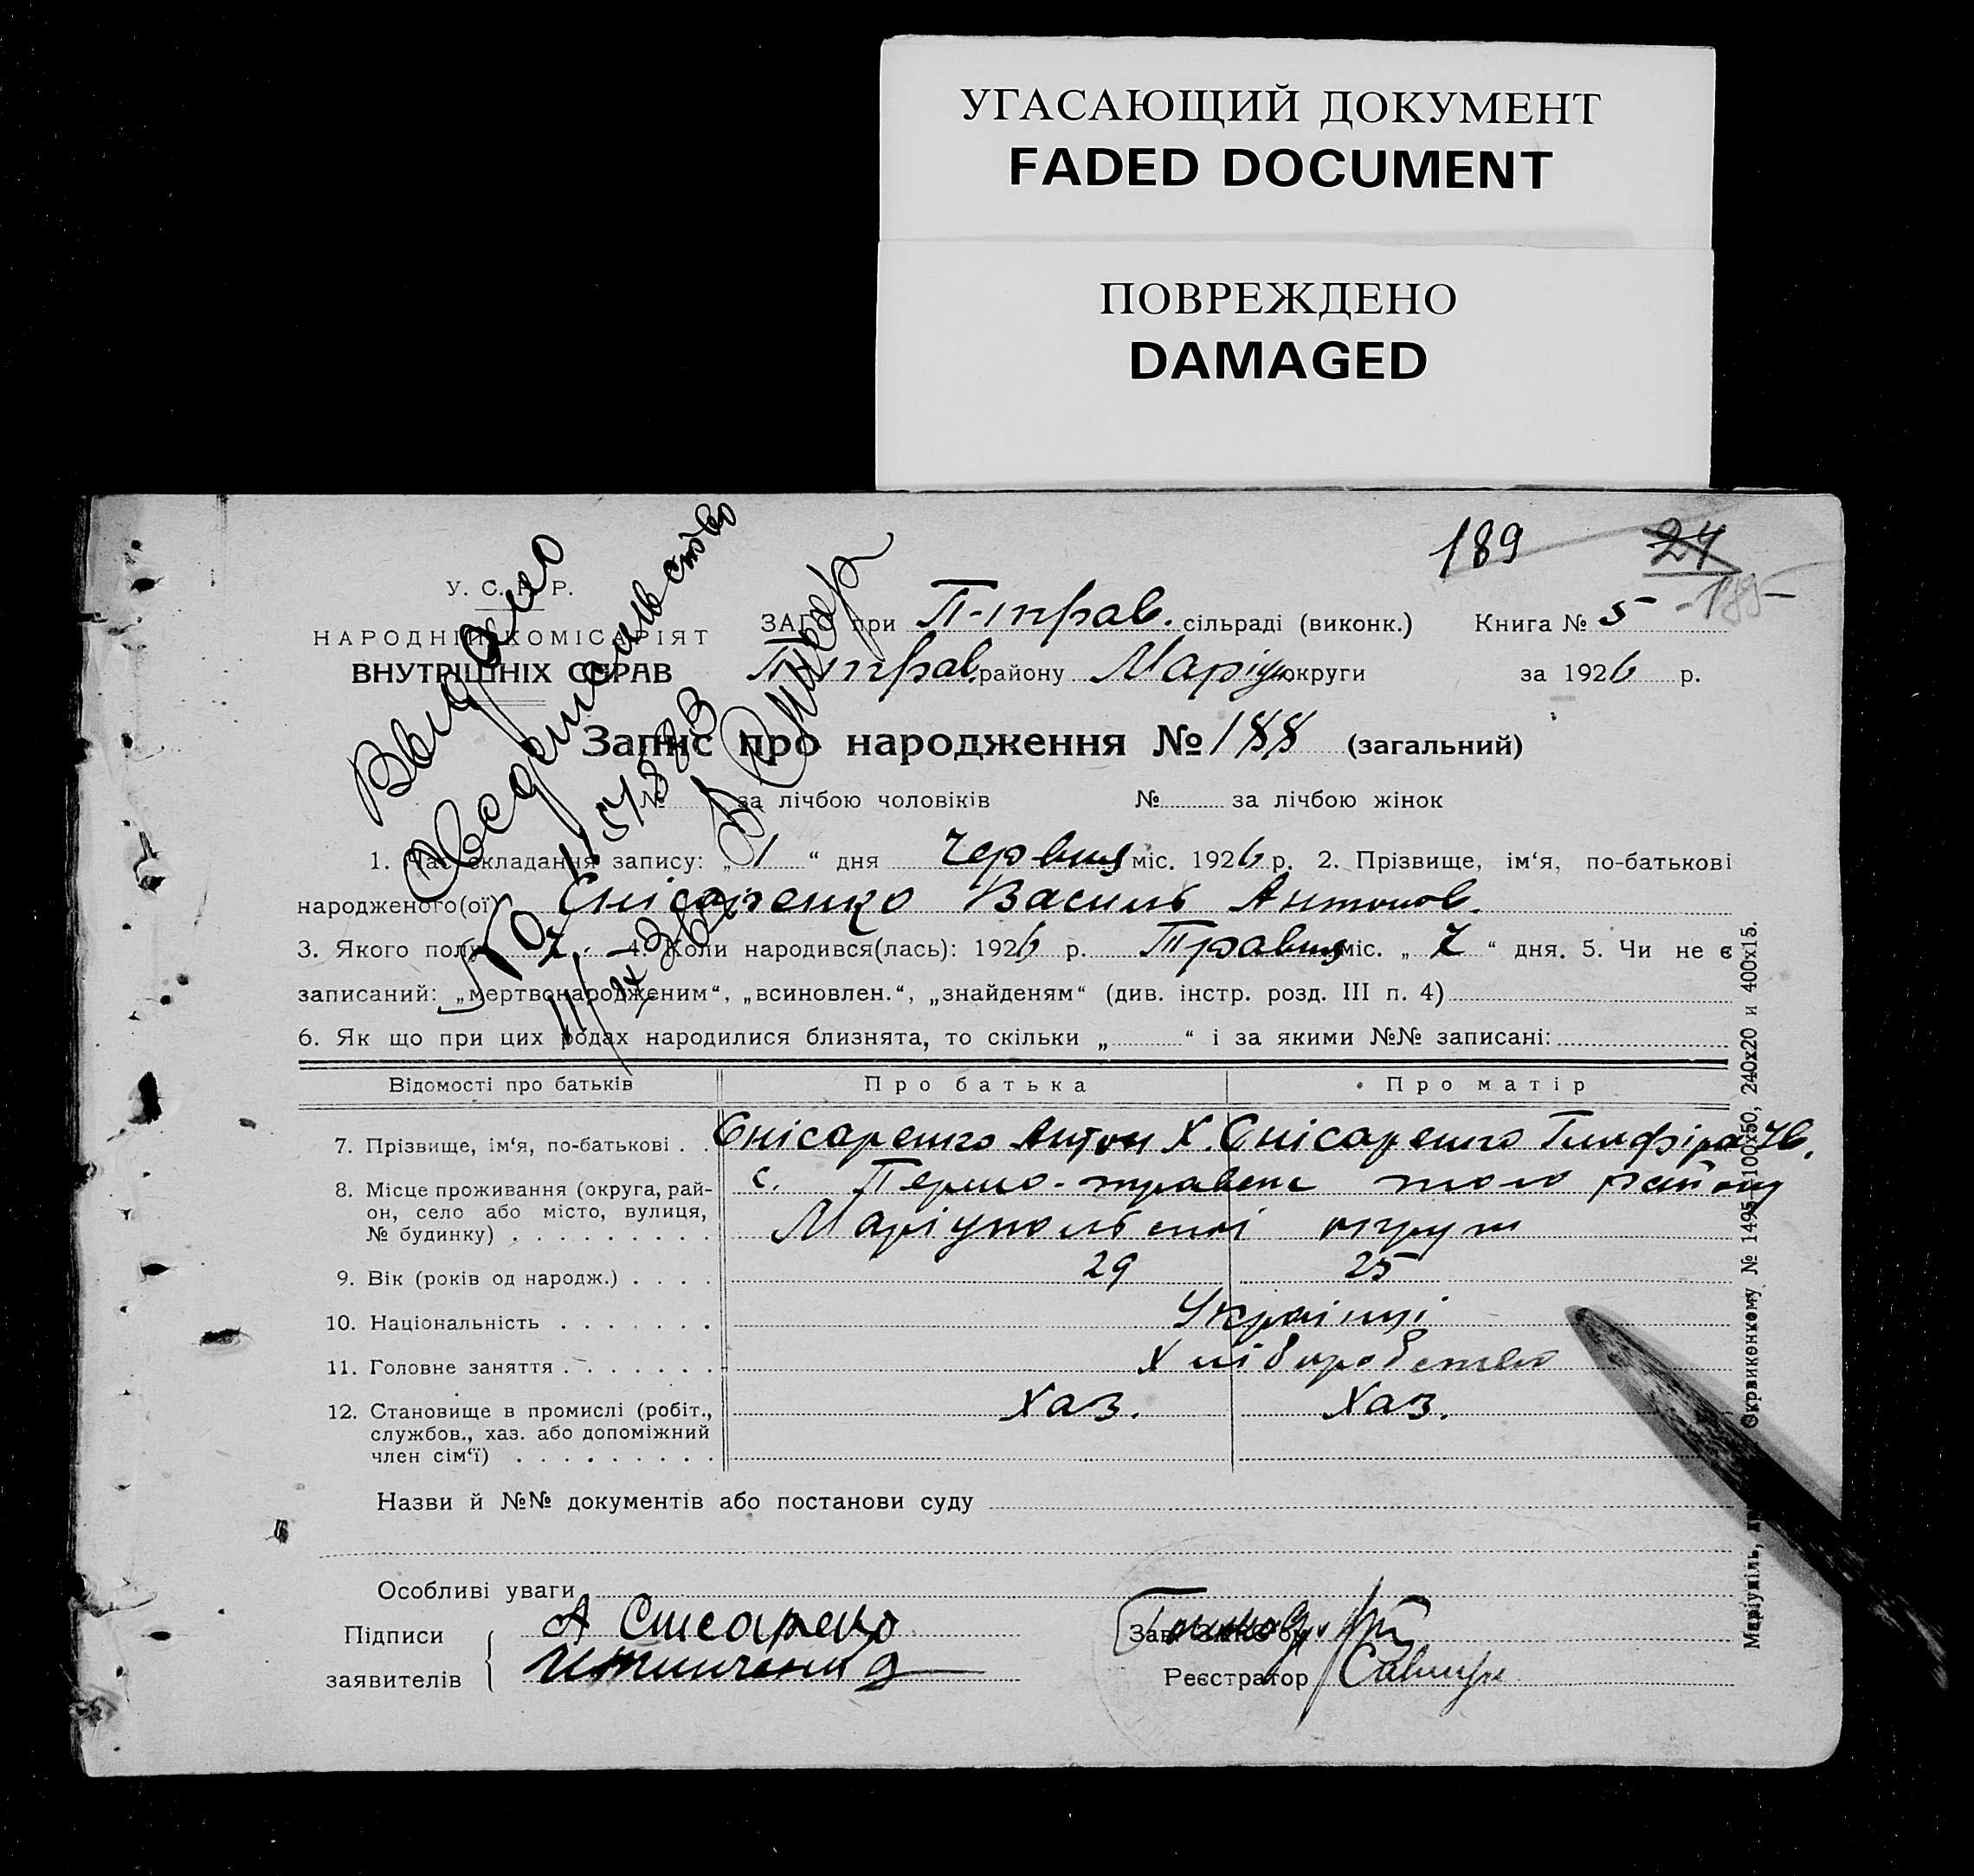 УГАСАЮЩИЙ ДОКУМЕНТ
FADED DOCUMENT
ПОВРЕЖДЕНО
DAMAGED
189 24
195
У. С. Р. Р.
НАРОДНІЙ КОМІСАРІЯТ
ВНУТРІШНІХ СПРАВ
ЗАГС при П-трав. сільраді (виконк.) Книга № 5
П трав. району Маріуп. округи за 1926 р.
Выдано
Свидетельство
Запис про народження № 188 (загальний)
№ за лічбою чоловіків № за лічбою жінок
1. Час складання запису: „ 1 “ дня Червня міс. 1926 р. 2. Прізвище, ім‘я, по-батькові
народженого(ої) Єнісаренко Василь Антонов.
3. Якого полу ч. 4. Коли народився(лась): 1926 р. Травня міс. „ 7 “ дня. 5. Чи не є
записаний: „мертвонародженим“, „всиновлен.“, „знайденям“ (див. інстр. розд. III п. 4)
6. Як що при цих родах народилися близнята, то скільки „ “ і за якими №№ записані:
Відомості про батьків Про батька Про матір
7. Прізвище, ім‘я, по-батькові . . Єнісаренко Антон Х. Єнісаренко
8. Місце проживання (округа, рай-
он, село або місто, вулиця,
№ будинку) . . . . . . . . .
с. Першо-травенс того району
Маріупольскої округи
9. Вік (років од народж.) . . . . 29 25
10. Національність . . . . . . . Українці
11. Головне заняття . . . . . . . Хліборобство
12. Становище в промислі (робіт.,
службов., хаз. або допоміжний
член сім‘ї) . . . . . . . . .
Хаз. Хаз.
Назви й №№ документів або постанови суду
Особливі уваги
Підписи
заявителів
А Єнісаренко
Зав.
Реєстратор
Маріупіль, Окрвиконкому № 1495—100х50, 240х20 и 400х15.